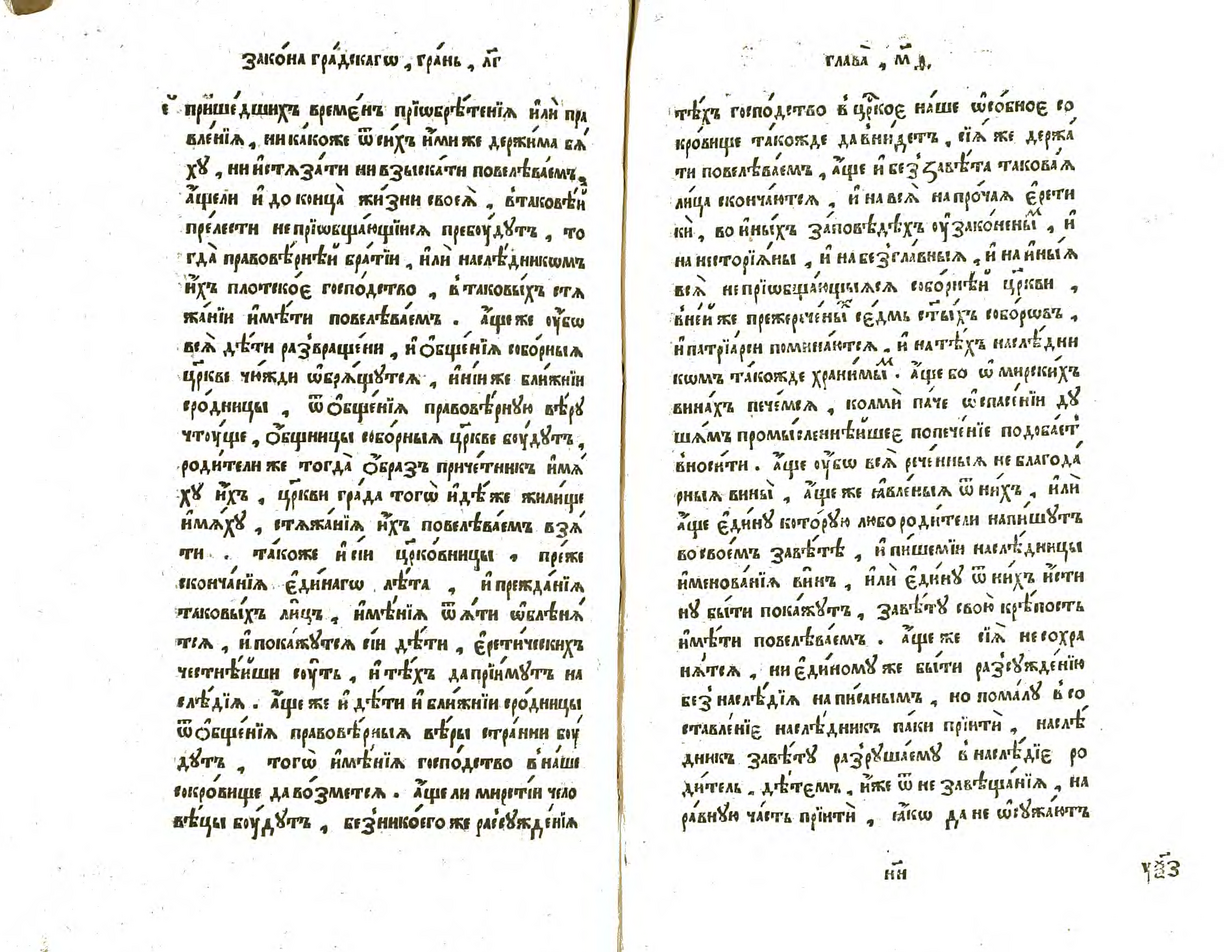 Зако́на гра́дскагѡ , гра́нь , л҃г
е҃ прише́дшихъ време́нъ прїѡбрѣ́тенїѧ и҆лѝ пра
вле́нїѧ , ника́коже ѿ си́хъ и҆́миже держи́ма бѧ́
хꙋ , ни и҆стѧза́ти ни взыска́ти повелѣва́емъ ,
а҆́щели и҆ до конца̀ жи́зни своеѧ̀ , в̾ таковѣ́й
пре́лести не прїѡбща́ющїисѧ пребꙋ́дꙋтъ , то
гда̀ правовѣ́рнѣй бра́тїи , и҆лѝ наслѣ́дникѡмъ
и҆́хъ пло́тское госпо́дство , в̾ таковы́хъ стѧ
жа́нїи и҆мѣ́ти повелѣва́емъ . а҆́ще же ᲂу҆́бѡ
всѧ̀ дѣ́ти развраще́ни , и҆ ѻ҆бще́нїѧ собо́рныѧ
цр҃кве чю́жди ѡ҆брѧ́щꙋтсѧ , и҆ні́и же бли́жнїи
сро́дницы , ѿ ѻ҆бще́нїѧ правовѣ́рнꙋю вѣ́рꙋ
чтꙋ́ще , ѻ҆́бщницы собо́рныѧ цр҃кве бꙋ́дꙋтъ ,
роди́тели же тогда̀ ѻ҆́бразъ приче́тникъ и҆мѧ́
хꙋ и҆́хъ , цр҃кви гра́да тогѡ̀ и҆дѣ́же жили́ще
и҆мѧ́хꙋ , стѧжа́нїѧ и҆́хъ повелѣва́емъ взѧ́
ти . та́коже и҆ сі́и цр҃ко́вницы , пре́же
сконча́нїѧ є҆ди́нагѡ лѣ́та , и҆ прежда́нїѧ
таковы́хъ ли́цъ , и҆мѣ́нїѧ ѿѧ́ти ѡ҆блѣнѧ́
тсѧ , и҆ пока́жꙋтсѧ сі́и дѣ́ти , є҆рети́ческихъ
честнѣ́йши сꙋ́ть , и҆ тѣ́хъ да прїи́мꙋтъ на
слѣ́дїѧ . а҆́ще же и҆ дѣ́ти и҆ бли́жнїи сро́дницы
ѿ ѻ҆бще́нїѧ правовѣ́рныѧ вѣ́ры стра́нни бꙋ́
дꙋтъ , тогѡ̀ и҆мѣ́нїѧ госпо́дство в̾ на́ше
сокро́вище да во́зметсѧ . а҆́ще ли мирсті́и чело
вѣ́цы бꙋ́дꙋтъ , без̾ никоегѡ́же разсꙋжде́нїѧ
глава̀ , м҃д ,
тѣ́хъ госпо́дство в̾ цр҃кое на́ше ѡ҆со́бное со
кро́вище та́кожде да вни́детъ , сїѧ̀ же держа́
ти повелѣва́емъ , а҆́ще и҆ без̾ завѣ́та такова́ѧ
ли́ца сконча́ютсѧ , и҆ на всѧ̀ на про́чаѧ є҆рети
кѝ , во и҆ны́хъ за́повѣдехъ ᲂу҆зако́нены , и҆
на несторїѧ́ны , и҆ на без̾гла́вныѧ , и҆ на и҆ны́ѧ
всѧ̀ не прїѡбща́ющыѧсѧ собо́рнѣй цр҃кви ,
в̾ не́йже прежерече́ны се́дмь ст҃ы́хъ собо́рѡвъ ,
и҆ патрїа́рси помина́ютсѧ , и҆ на тѣ́хъ наслѣ́дни
кѡмъ та́кожде храни́мы . а҆́ще бо ѡ҆ мирски́хъ
вина́хъ пече́мсѧ , колмѝ па́че ѡ҆ спасе́нїи дꙋ
ша́мъ промы́сленнѣйшее попече́нїе подоба́етъ
вноси́ти . а҆́ще ᲂу҆́бѡ всѧ̀ рече́нныѧ не благода́
рныѧ вины̀ , а҆́ще же ꙗ҆вле́ныѧ ѿ ни́хъ , и҆лѝ
а҆́ще є҆ди́нꙋ котору́ю любо роди́тели напи́шꙋтъ
во свое́мъ завѣ́тѣ , и҆ пи́шемїи наслѣ́дницы
и҆менова́нїѧ ви́нъ , и҆лѝ є҆ди́нꙋ ѿ ни́хъ и҆́сти
нꙋ бы́ти пока́жꙋтъ , завѣ́тꙋ свою̀ крѣ́пость
и҆мѣ́ти повелѣва́емъ . а҆́ще же сїѧ̀ не сохра
нѧ́тсѧ , ни є҆ди́номꙋ же бы́ти разсꙋжде́нїю
без̾ наслѣ́дїѧ напи́санымъ , но пома́лꙋ в̾ со
ставле́нїе наслѣ́дникъ па́ки прїитѝ , наслѣ́
дникъ завѣ́тꙋ разрꙋша́емꙋ в̾ наслѣ́дїе ро
ди́тель , дѣ́темъ , и҆́же ѿ не завѣща́нїѧ , на
ра́внꙋю ча́сть прїитѝ , ꙗ҆́кѡ да не ѡ҆сꙋжа́ютъ
н҃и